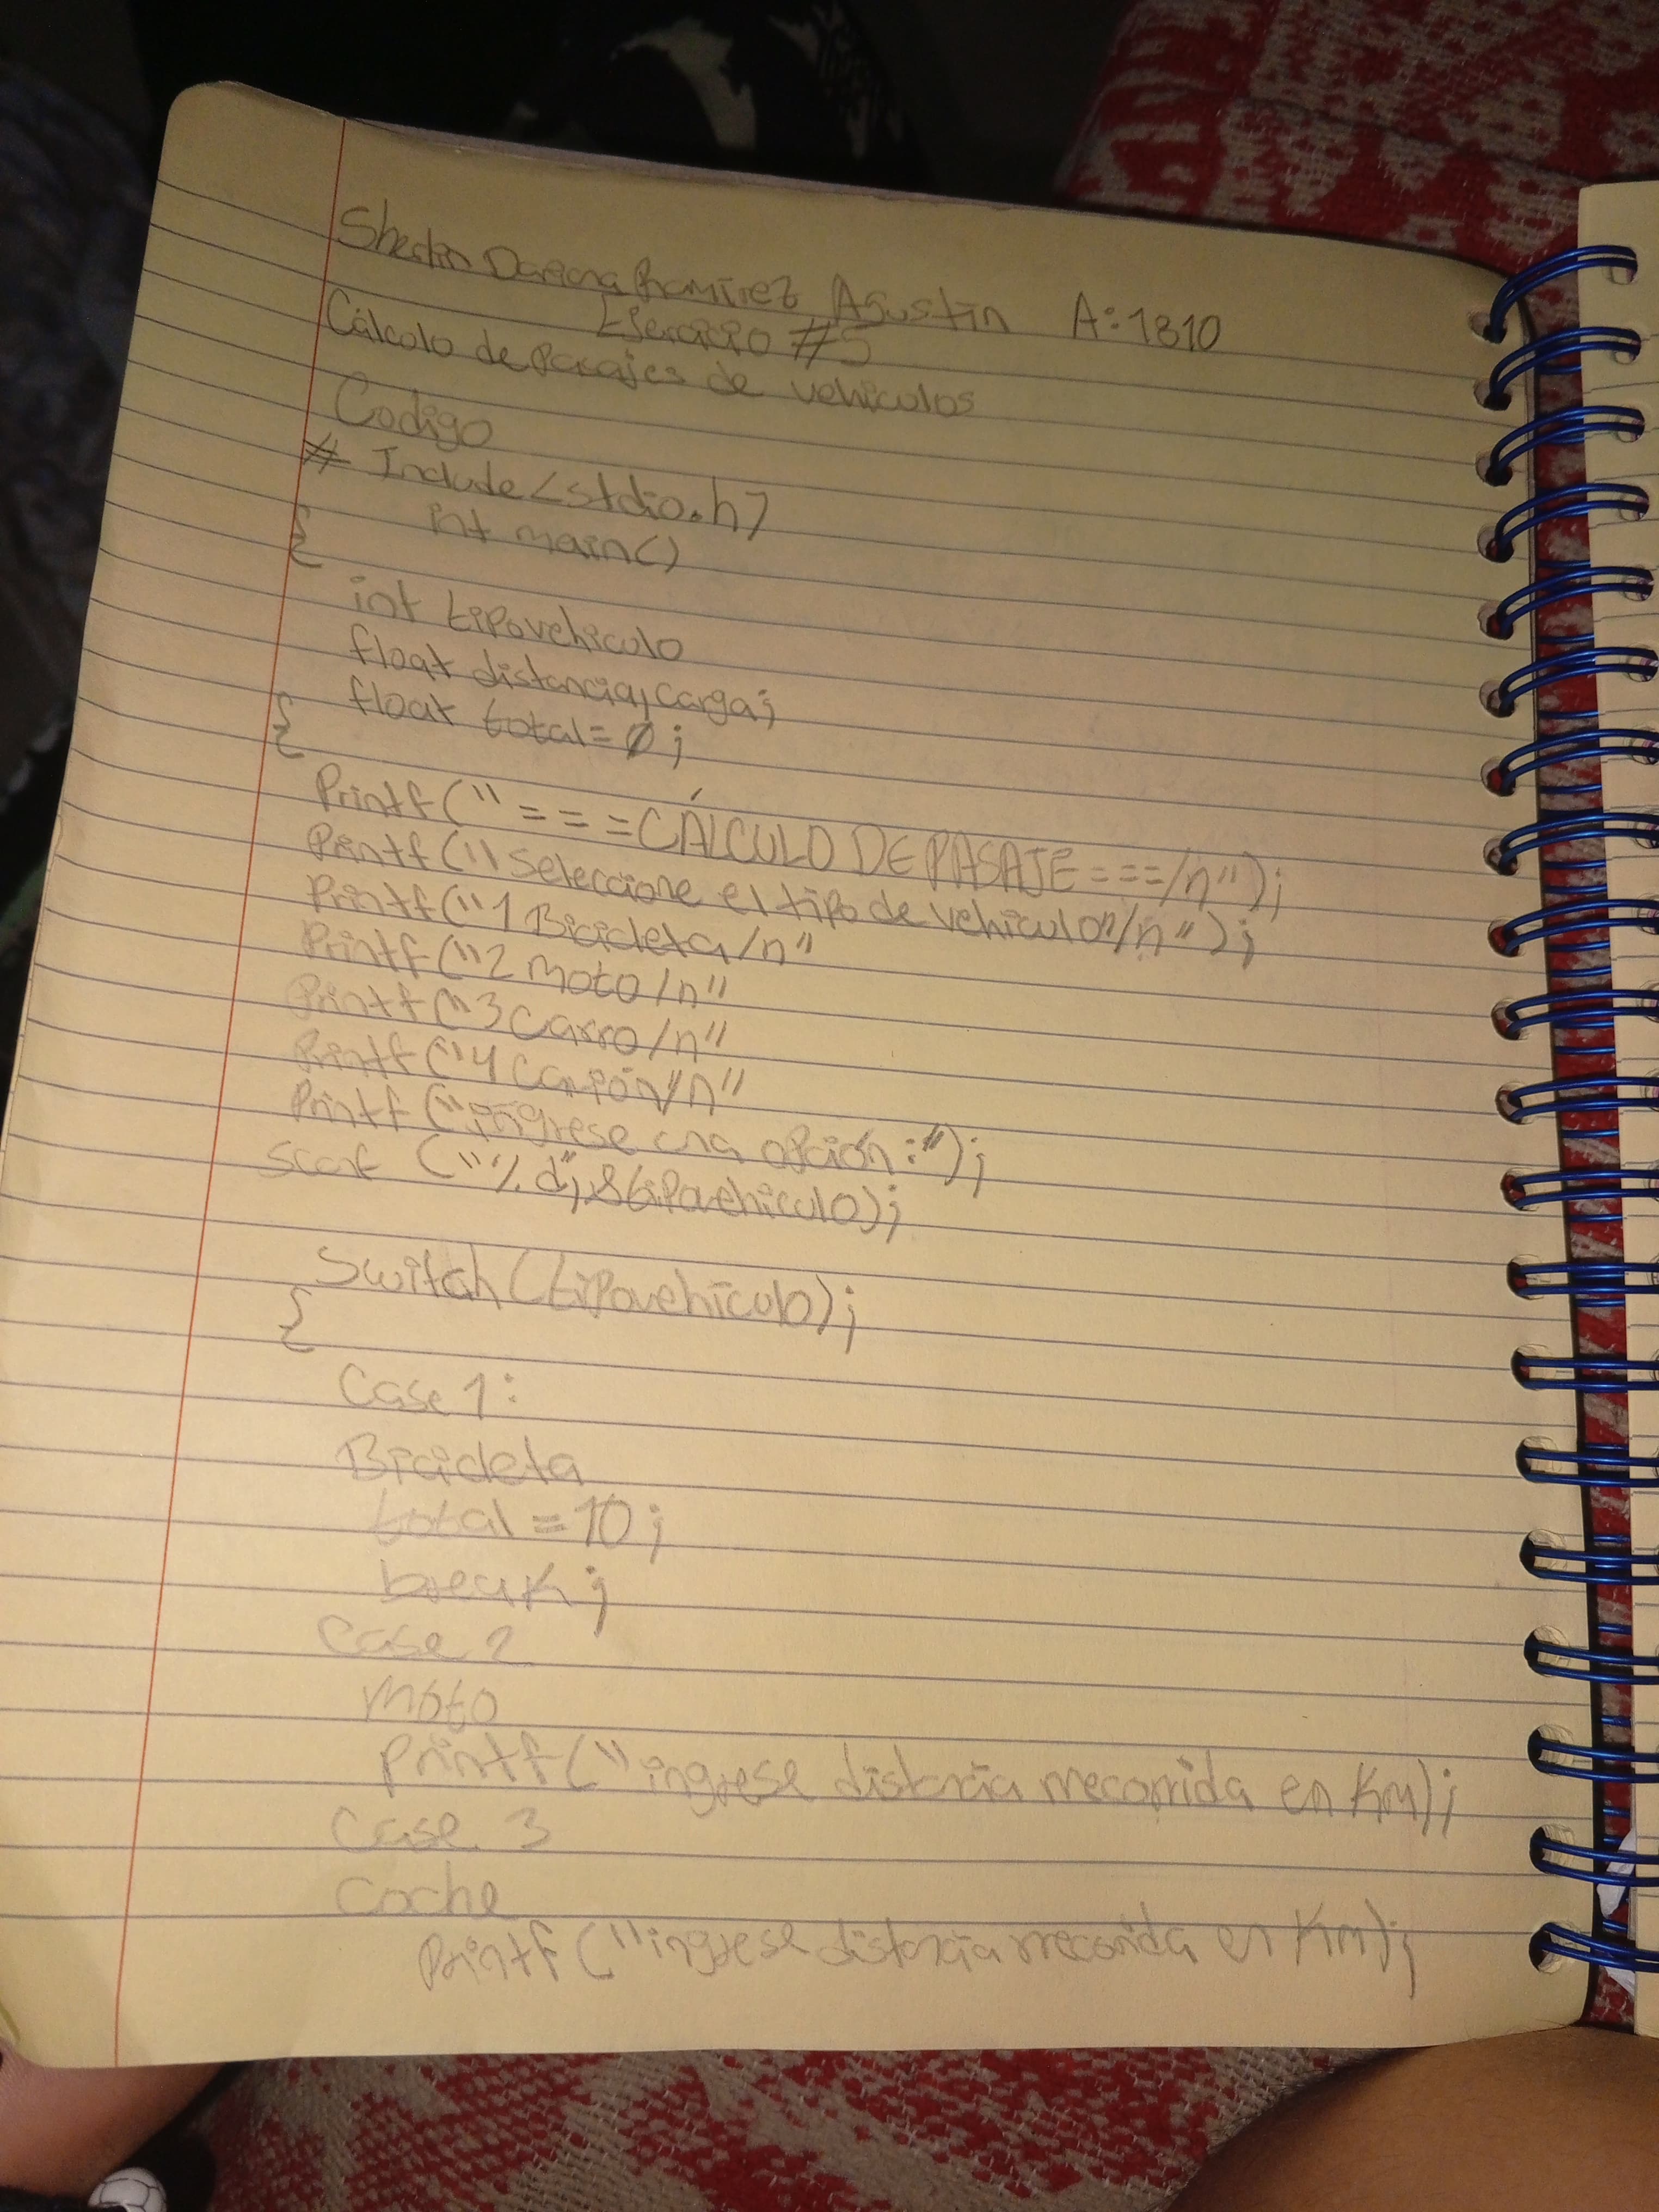 Sherlin Dariana Ramírez Agustin A:1810
Ejercicio #5
Cálculo de Pasajes de vehiculos
Codigo
# Include <stdio.h>
int main()
{
int tipovehiculo
float distancia, carga;
float total = 0;
{
Printf("===CÁLCULO DE PASAJE===/n");
Printf("Seleccione el tipo de vehiculo"/n");
Printf("1 Bicicleta/n"
Printf("2 moto/n"
Printf("3 Carro/n"
Printf("4 Camión/n"
Printf("ingrese una opción:");
Scanf ("%d", &tipovehiculo);
Switch (tipovehiculo);
{
Case 1:
Bicicleta
total = 10;
break;
Case 2
moto
Printf("ingrese distancia rrecorrida en Km);
Case 3
Coche
Printf("ingrese distancia rrecorrida en Km);